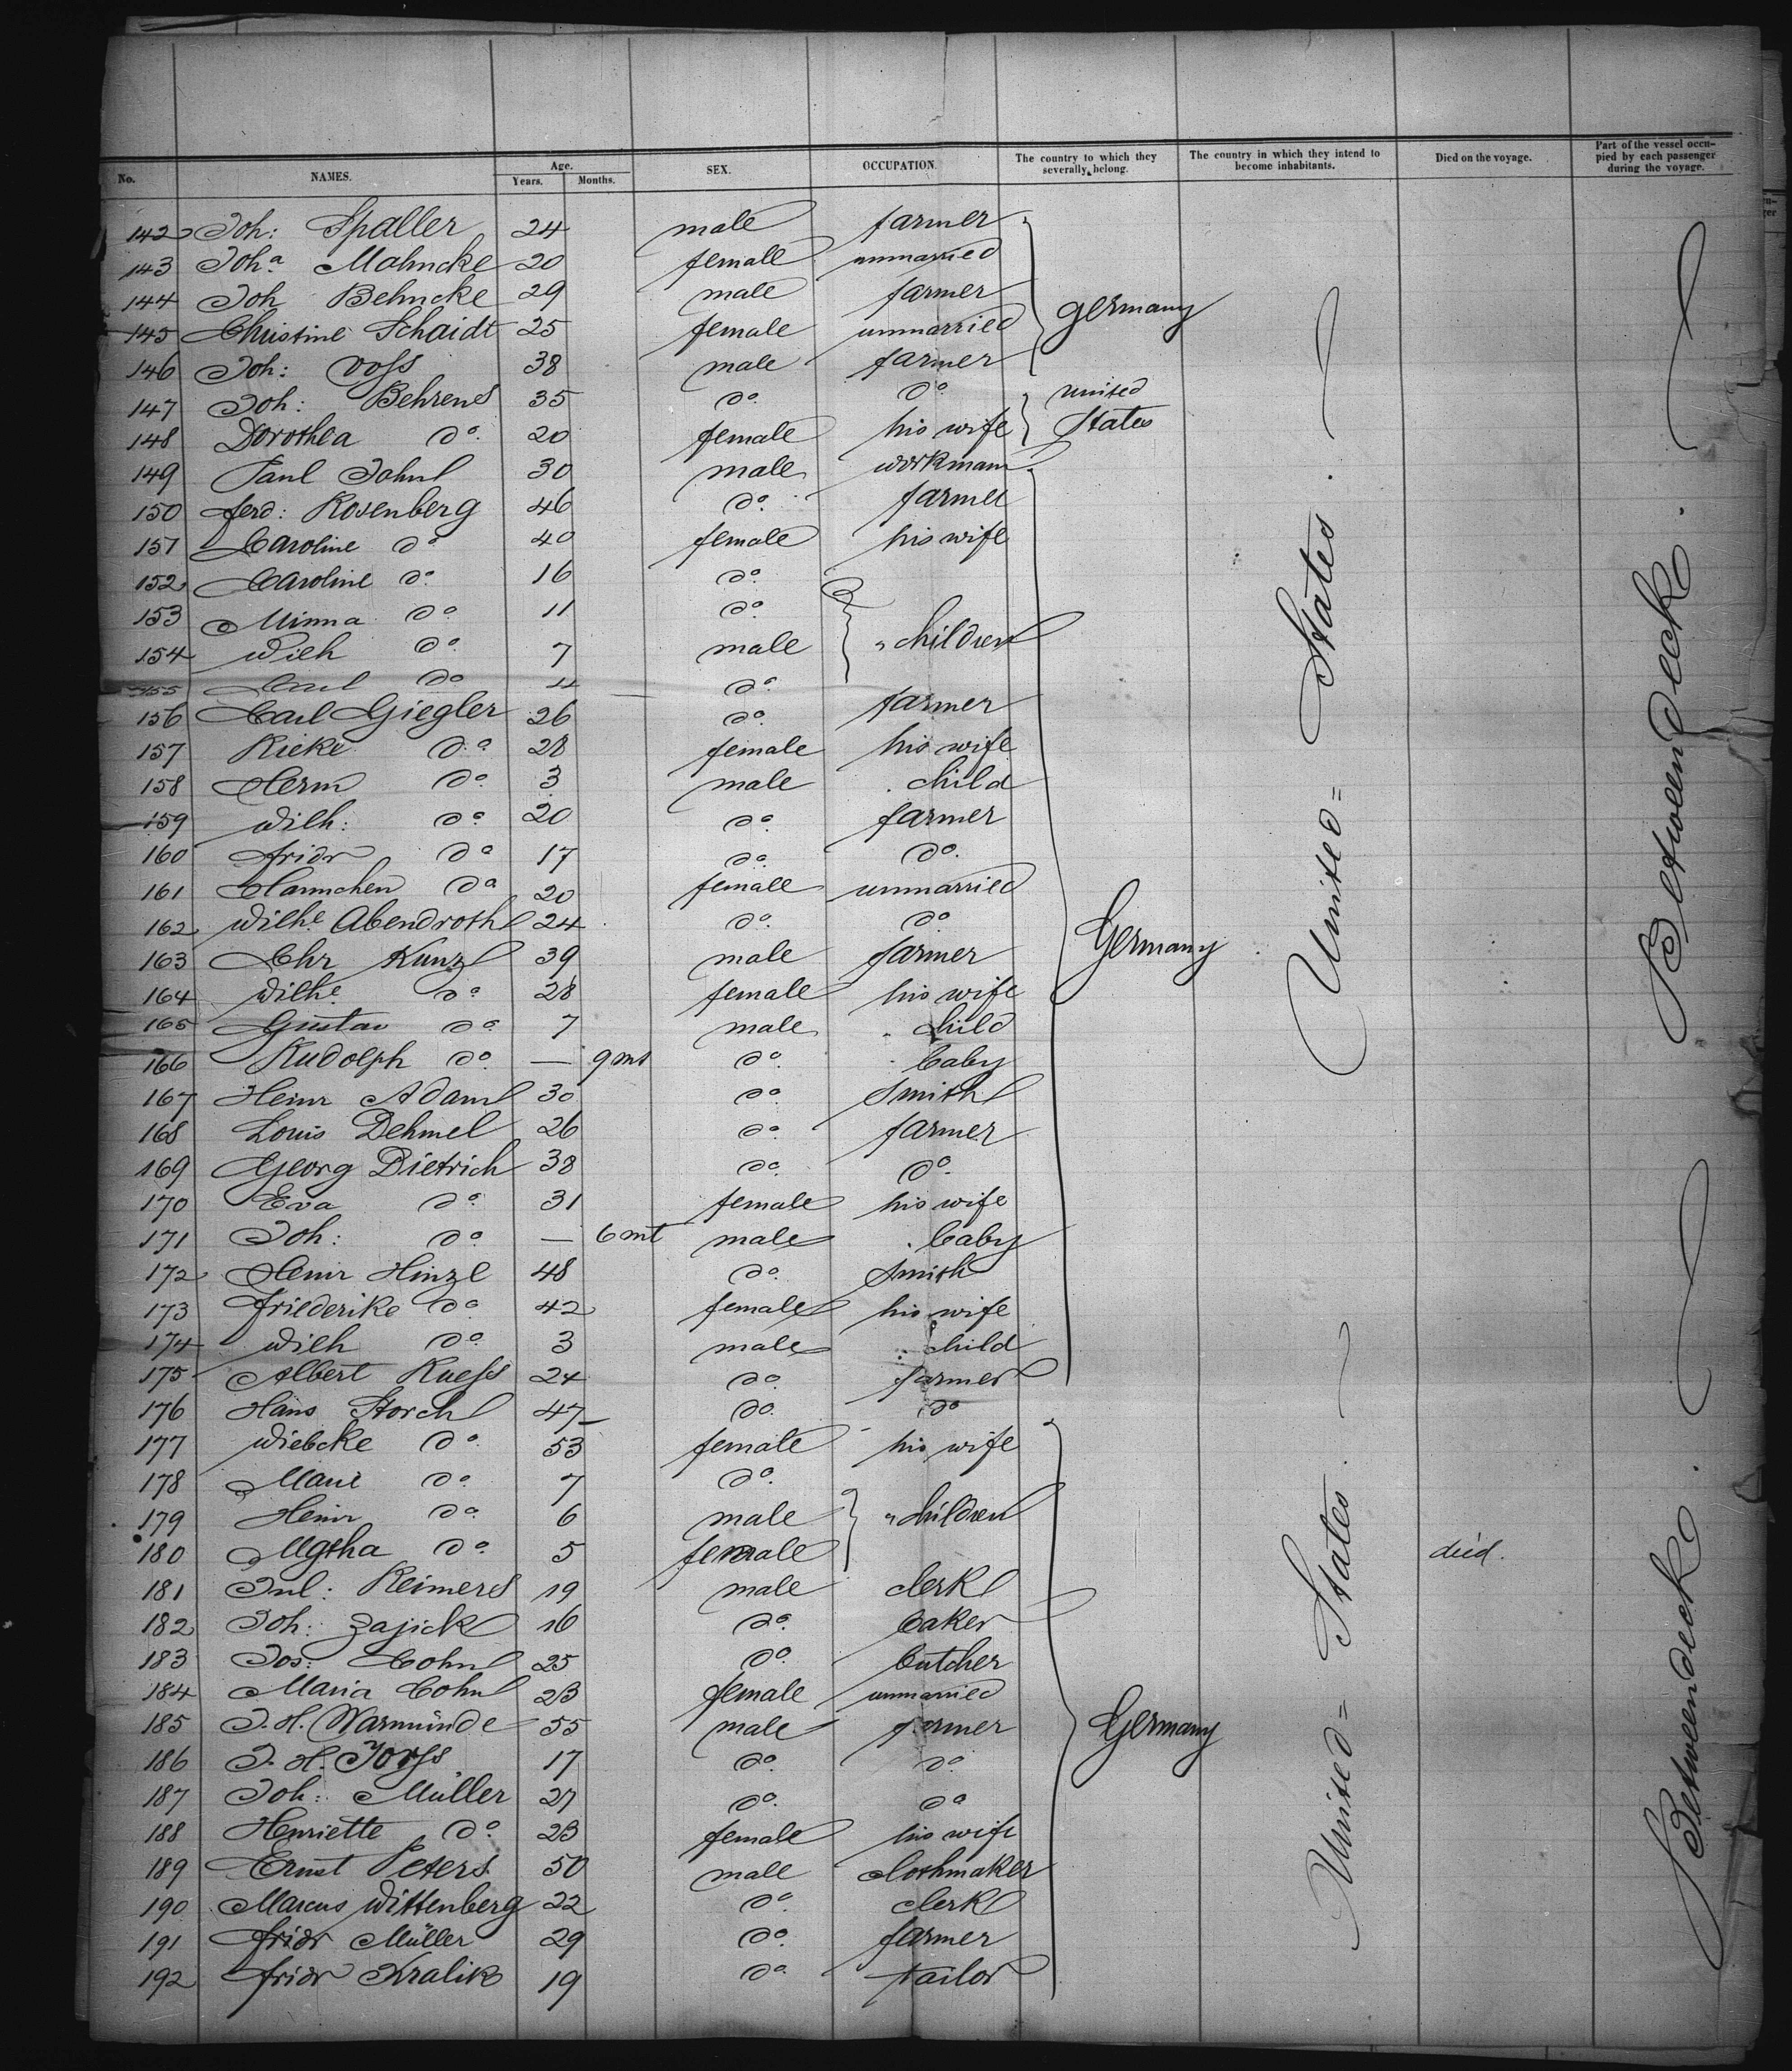 No. NAMES. Age. Years. Months. SEX. OCCUPATION. The country to which they severally belong. The country in which they intend to become inhabitants. Died on the voyage. Part of the vessel occupied by each passenger during the voyage.
142 Joh: Spaller 24 male farmer
143 Joh.a Mahncke 20 female unmarried
144 Joh Behncke 29 male farmer Germany
145 Christine Schaidt 25 female unmarried
146 Joh: Voss 38 male farmer
147 Joh: Behrens 35 do. do. United
148 Dorothea do. 20 female his wife States
149 Paul John 30 male workman
150 Ferd: Rosenberg 46 do. farmer
151 Caroline do 40 female his wife
152 Caroline do. 16 do.
153 Minna do. 11 do.
154 Wilh do. 7 male " children
155 Carl do 4 do.
156 Carl Giegler 26 do. farmer
157 Rieke do 28 female his wife
158 Herm do. 3 male " child
159 Wilh: do. 20 do. farmer
160 Fridr do 17 do. do.
161 Hannchen do 20 female unmarried
162 Wilh.e Abendroth 24 do. do
163 Chr Kunz 39 male farmer Germany
164 Wilh.e do 28 female his wife
165 Gustav do 7 male " child
166 Rudolph do. — 9 mt do. " baby
167 Heinr Adam 30 do. Smith
168 Louis Dehmel 26 do. farmer
169 Georg Dietrich 38 do. do.
170 Eva do. 31 female his wife
171 Joh: do. — 6 mt male " baby
172 Heinr Hinze 48 do. Smith
173 Friederike do 42 female his wife
174 Wilh do. 3 male " child
175 Albert Ruess 24 do. farmer
176 Hans Storch 47 do. do
177 Wiebcke do. 53 female his wife
178 Marie do. 7 do.
179 Heinr do. 6 male " children
180 do. 5 female died.
181 Jul: Reimers 19 male clerk
182 Joh: Zajick 16 do. baker
183 Jos: Cohn 25 do. butcher
184 Maria Cohn 23 female unmarried
185 J. H. Warmünde 55 male farmer Germany
186 J. H. Jorss 17 do. do
187 Joh: Müller 27 do. do
188 Henriette do. 23 female his wife
189 Ernst Peters 50 male clothmaker
190 Marcus Wittenberg 22 do. clerk
191 Fridr Müller 29 do. farmer
192 Fridr Kralik 19 do. tailor
United = States.
United = States.
Betweendeck.
Betweendeck.